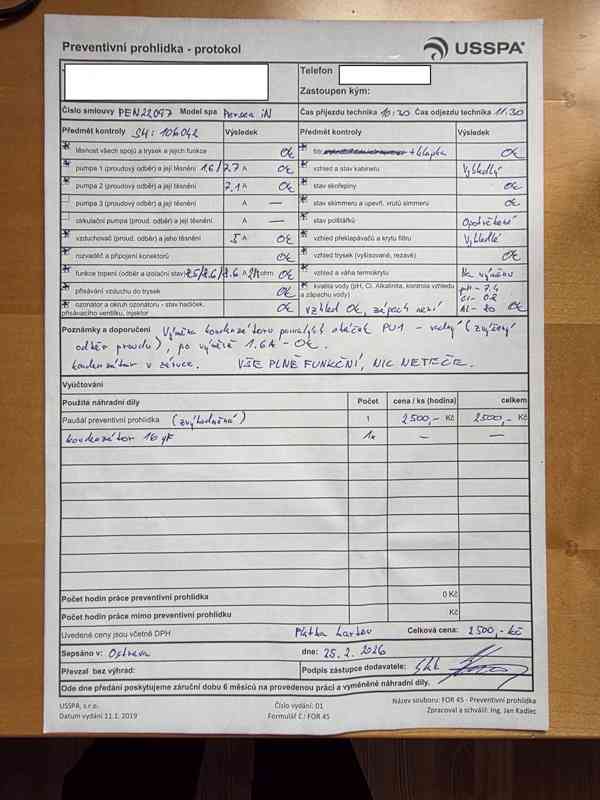 Preventivní prohlídka - protokol
USSPA®
Telefon
Zastoupen kým:
Číslo smlouvy PEN22097 Model spa Persea iN
Čas příjezdu technika 10:30 Čas odjezdu technika 11.30
Předmět kontroly SN: 106042 Výsledek
Předmět kontroly Výsledek
těsnost všech spojů a trysek a jejich funkce OK
+ klapka OK
pumpa 1 (proudový odběr) a její těsnění 1.6/7.7 A OK
vzhled a stav kabinetu Vybledlý
pumpa 2 (proudový odběr) a její těsnění 7.1 A OK
stav skořepiny OK
pumpa 3 (proudový odběr) a její těsnění A —
stav skimmeru a upevň. vrutů simmeru OK
cirkulační pumpa (proud. odběr) a její těsnění A —
stav polštářků Opotřebené
vzduchovač (proud. odběr) a jeho těsnění 5 A OK
vzhled překlapávačů a krytu filtru Vybledlé
rozvaděč a připojení konektorů OK
vzhled trysek (vyšisované, rezavé) OK
funkce topení (odběr a izolační stav) ohm OK
vzhled a váha termokrytu Na výměnu
přisávání vzduchu do trysek OK
kvalita vody (pH, Cl, Alkalinita, kontrola vzhledu a zápachu vody) pH - 7.4
Cl - 0.2
ozonátor a okruh ozonátoru - stav hadiček, přisávacího ventilku, injektor OK
vzhled OK, zápach není Al - 20 OK
Poznámky a doporučení Výměna kondenzátoru pomalých otáček PU1 - vadný (zvýšený
odběr proudu), po výměně 1.6A - OK.
kondenzátor v záruce. VŠE PLNĚ FUNKČNÍ, NIC NETEČE.
Vyúčtování
Použité náhradní díly Počet cena / ks (hodina) celkem
Paušál preventivní prohlídka (zvýhodněná) 1 2500,- Kč 2500,- Kč
kondenzátor 16 µF 1x — —
Počet hodin práce preventivní prohlídka 0 Kč
Počet hodin práce mimo preventivní prohlídku Kč
Uvedené ceny jsou včetně DPH Platba kartou Celková cena: 2500,- Kč
Sepsáno v: Ostrava dne: 25.2.2026
Převzal bez výhrad: Podpis zástupce dodavatele:
Ode dne předání poskytujeme záruční dobu 6 měsíců na provedenou práci a vyměněné náhradní díly.
USSPA, s.r.o. Číslo vydání: 01 Název souboru: FOR 45 - Preventivní prohlídka
Datum vydání 11.1. 2019 Formulář č.: FOR 45 Zpracoval a schválil: Ing. Jan Kadlec